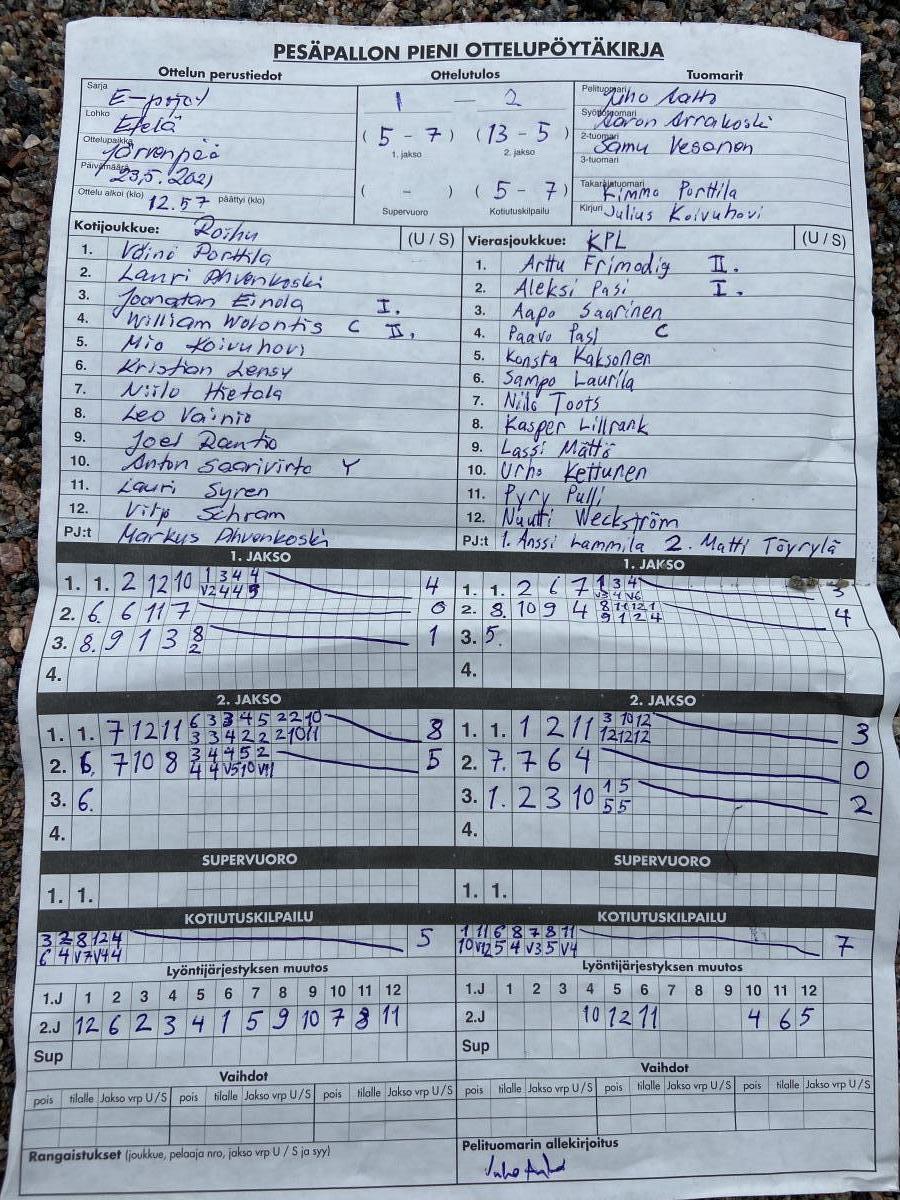 PESÄPALLON PIENI OTTELUPÖYTÄKIRJA
Ottelun perustiedot
Sarja E-pojat
Lohko Etelä
Ottelupaikka Järvenpää
Päivämäärä 23.5.2021
Ottelu alkoi (klo) 12.57 päättyi (klo)
Ottelutulos
1 — 2
( 5 - 7 ) ( 13 - 5 )
1. jakso 2. jakso
( - ) ( 5 - 7 )
Supervuoro Kotiutuskilpailu
Tuomarit
Pelituomari Juho Aalto
Syöttötuomari Aaron Arrakoski
2-tuomari Samu Vesanen
3-tuomari
Takarajatuomari Kimmo Porttila
Kirjuri Julius Koivuhovi
Kotijoukkue: Roihu (U / S)
1. Väinö Porttila
2. Lauri Ahvenkoski
3. Joonatan Einola I.
4. William Wolontis C II.
5. Mio Koivuhovi
6. Kristian Lensy
7. Niilo Hietala
8. Leo Vainio
9. Joel Rantio
10. Anton Saarivirta Y
11. Lauri Syren
12. Vilp Schram
PJ:t Markus Ahvenkoski
Vierasjoukkue: KPL (U / S)
1. Arttu Frimodig II.
2. Aleksi Pasi I.
3. Aapo Saarinen
4. Paavo Pasi C
5. Konsta Kaksonen
6. Sampo Laurila
7. Nilo Toots
8. Kasper Lillrank
9. Lassi Mättö
10. Urho Kettunen
11. Pyry Pulli
12. Nuutti Weckström
PJ:t 1. Anssi Lammila 2. Matti Töyrylä
1. JAKSO
1. 1. 2 12 10 1 3 4 4 4
V2 4 4 5
2. 6. 6 11 7 0
3. 8. 9 1 3 8 1
2
4.
1. JAKSO
1. 1. 2 6 7 1 3 4 3
V3 4 V6
2. 8. 10 9 4 8 11 12 1 4
9 1 2 4
3. 5.
4.
2. JAKSO
1. 1. 7 12 11 6 3 3 4 5 2 2 10 8
3 3 4 2 2 2 10 11
2. 6. 7 10 8 3 4 4 5 2 5
4 4 V5 10 V11
3. 6.
4.
2. JAKSO
1. 1. 1 2 11 3 10 12 3
12 12 12
2. 7. 7 6 4 0
3. 1. 2 3 10 1 5 2
5 5
4.
SUPERVUORO
1. 1.
SUPERVUORO
1. 1.
KOTIUTUSKILPAILU
3 2 8 12 4 5
6 4 V7 V4 4
KOTIUTUSKILPAILU
1 11 6 8 7 8 11 7
10 V12 5 4 V3 5 V4
Lyöntijärjestyksen muutos
1.J 1 2 3 4 5 6 7 8 9 10 11 12
2.J 12 6 2 3 4 1 5 9 10 7 8 11
Sup
Lyöntijärjestyksen muutos
1.J 1 2 3 4 5 6 7 8 9 10 11 12
2.J 10 12 11 4 6 5
Sup
Vaihdot
pois tilalle Jakso vrp U / S pois tilalle Jakso vrp U / S pois tilalle Jakso vrp U / S
Vaihdot
pois tilalle Jakso vrp U / S pois tilalle Jakso vrp U / S pois tilalle Jakso vrp U / S
Rangaistukset (joukkue, pelaaja nro, jakso vrp U / S ja syy)
Pelituomarin allekirjoitus